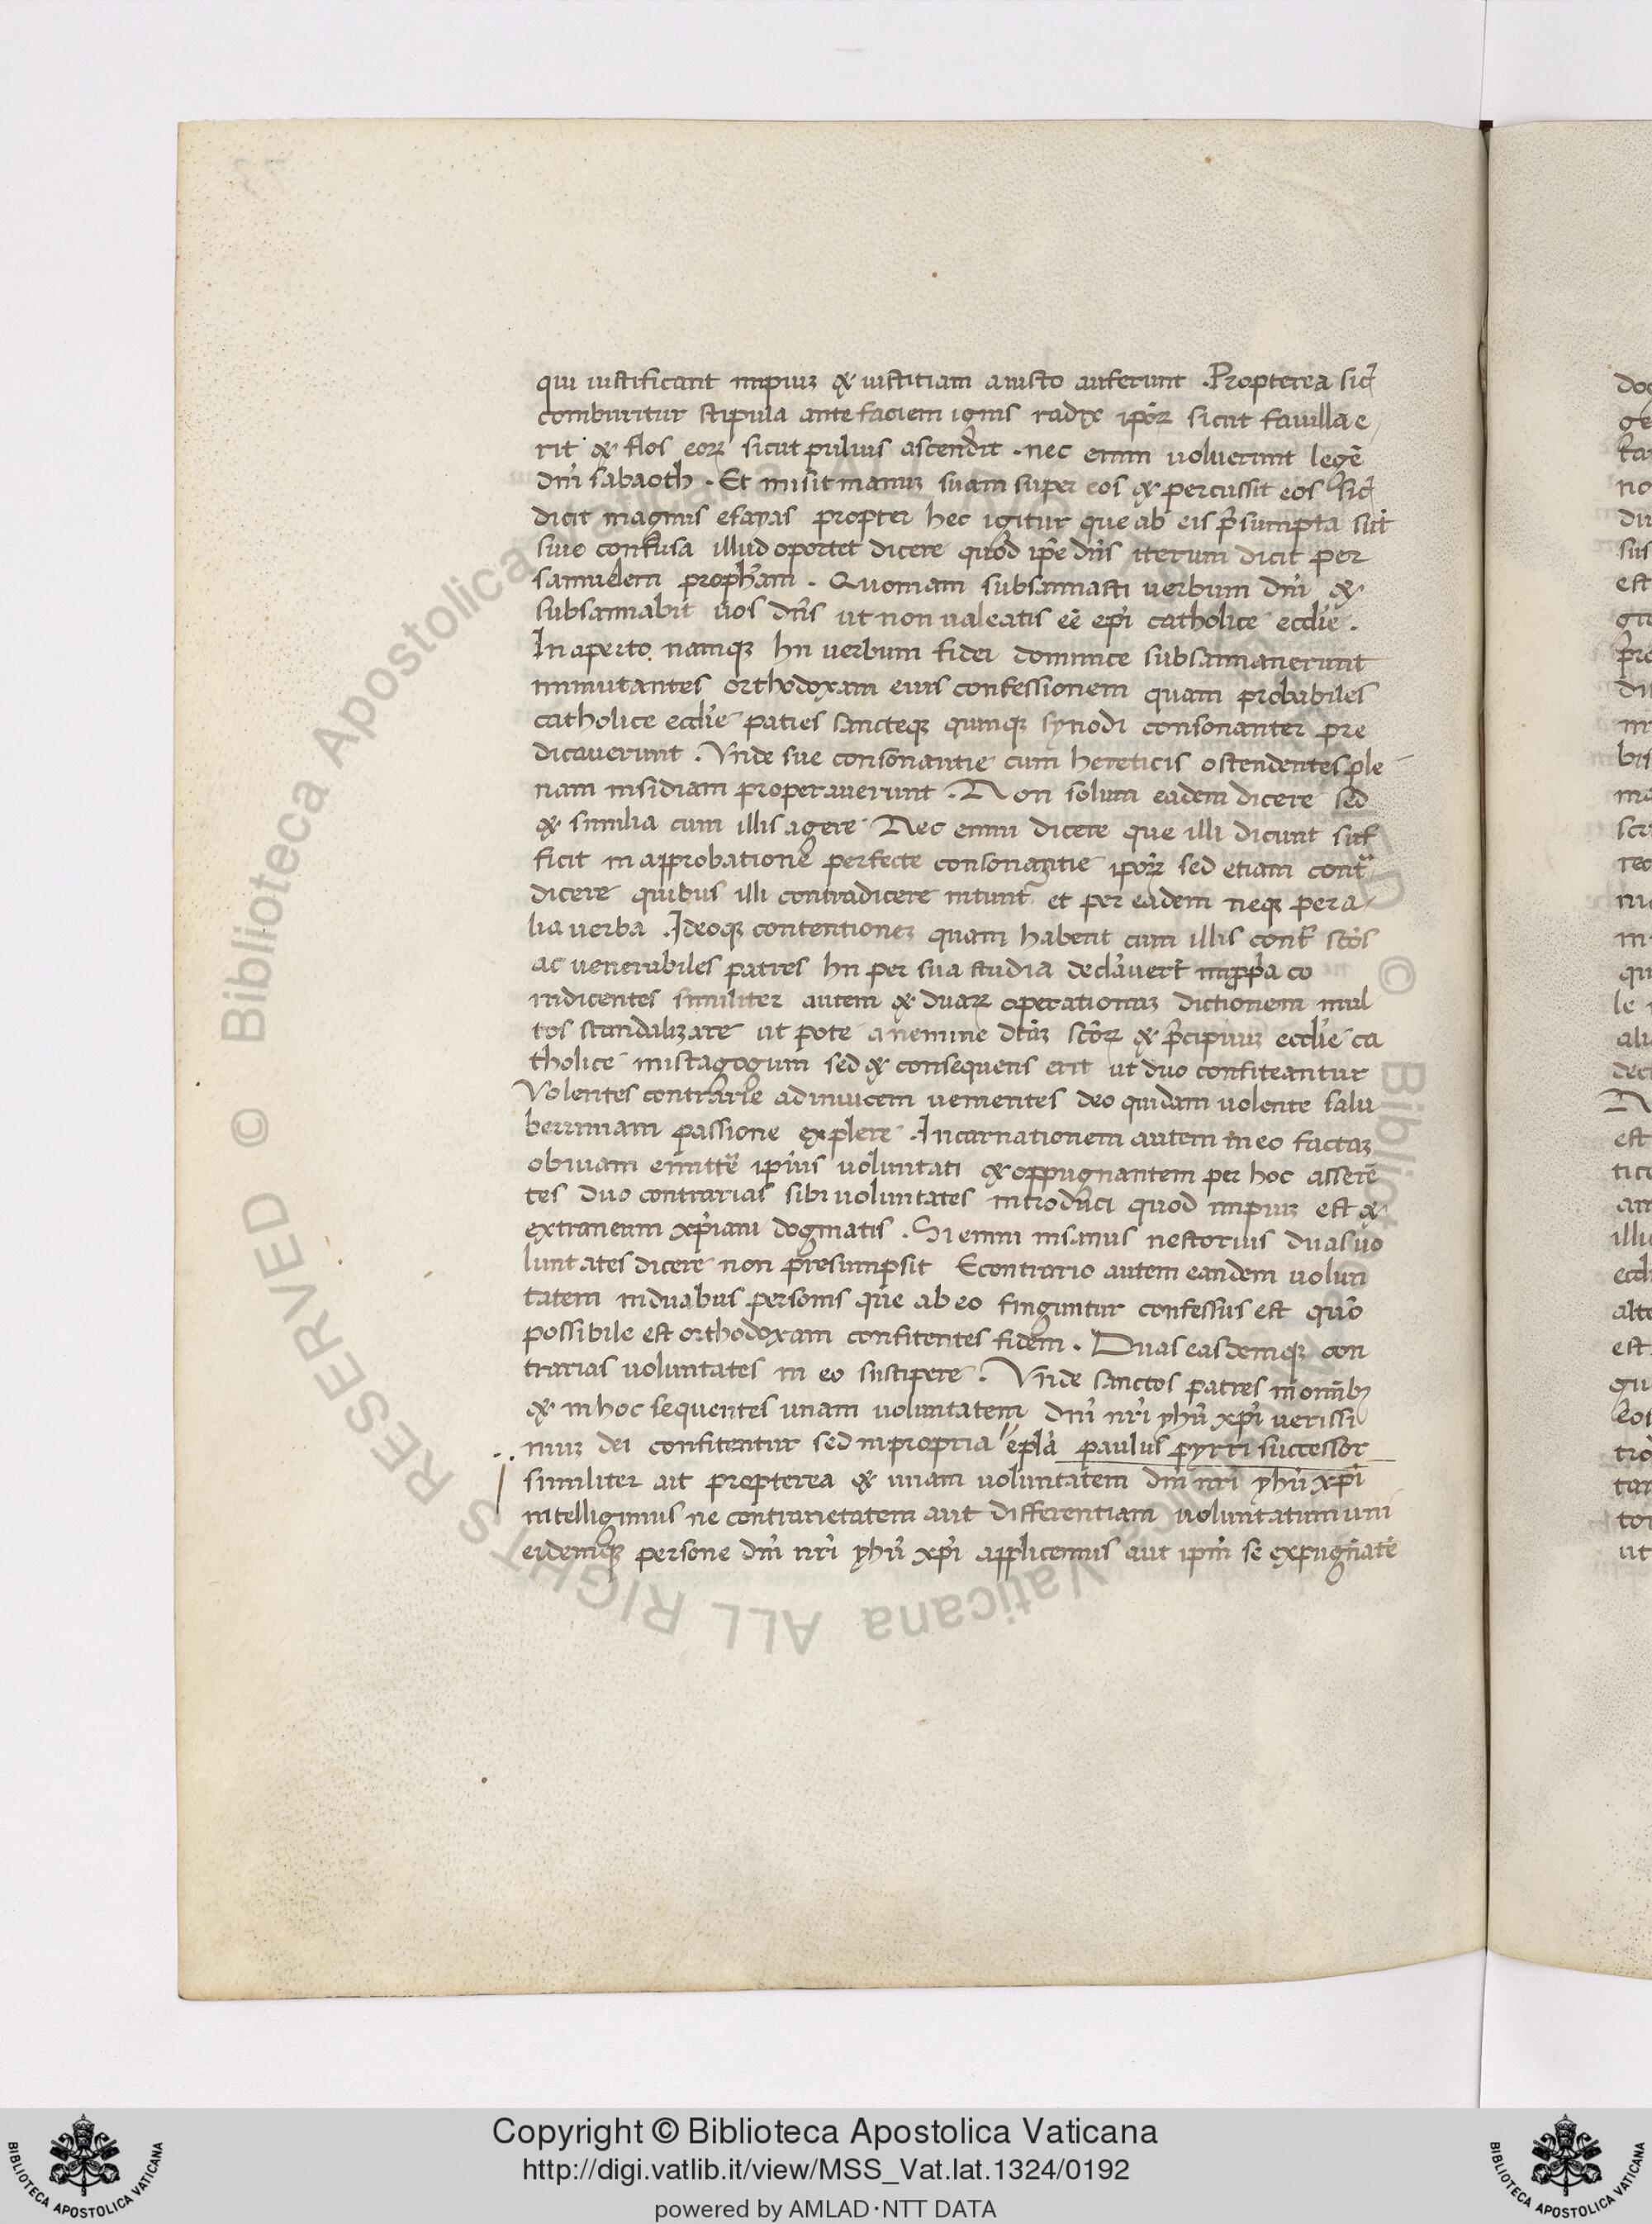 qui iustificant impiuȝ & iustitiam a iusto auferunt . Propterea sic̄
comburitur stipula ante faciem ignis radix ipoꝝ sicut fauilla e
rit & flos eoꝝ sicut puluis ascendit . nec enim uoluerunt legē
dn̄i sabaoth . Et misit manuȝ suam super eos & percussit eos sic̄
dicit magnus esayas propter hec igitur que ab eis p̄sumpta sūt
siue confusa illud oportet dicere quod ip̄e dn̄s iterum dicit per
samuelem proph̄am . Quoniam subsannasti uerbum dn̄i &
subsannabit uos dn̄s ut non ualeatis eē ep̄i catholice eccl̄ie .
In aperto namqȝ hii uerbum fidei dominice subsannauerunt
immutantes orthodoxam eius confessionem quam probabiles
catholice eccl̄ie patres sancteqȝ quinqȝ synodi consonanter pre
dicauerunt . Vnde sue consonantie cum hereticis ostendentes ple
nam insidiam properauerunt . Non solum eadem dicere sed
& similia cum illis agere Nec enim dicere que illi dicunt suf
ficit in approbationē perfecte consonantie ipoꝝ sed etiam cont̄
dicere quibus illi contradicere nitunt̄ et per eadem neqȝ per a
lia uerba . Ideoqȝ contentioneȝ quam habent cum illis cont̄ sc̄os
ac uenerabiles patres hii per sua studia declauert̄ co
indicentes similiter autem & duaꝝ operationuȝ dictionem mul
tos scandalizare ut pote a nemine sc̄oꝝ & p̄cipuuȝ eccl̄ie ca
tholice mistagogum sed & consequens erit ut duo confiteantur
Volentes contrarie adinuicem uenientes deo quidam uolente salu
berrimam passione explere . Incarnationem autem in eo factaȝ
obuiam ip̄ius uoluntati & oppugnantem per hoc asserē
tes duo contrarias sibi uoluntates introduci quod impiuȝ est &
extraneum xp̄iani dogmatis . Si enim insanus nestorius duas uo
luntates dicere non presumpsit Econtrario autem eandem uolun
tatem in duabus personis que ab eo finguntur confessus est quō
possibile est orthodoxam confitentes fidem . Duas easdemqȝ con
trarias uoluntates in eo suscipere . Vnde sanctos patres in omībȝ
& in hoc sequentes unam uoluntatem dn̄i nr̄i yhū xp̄i uerissi
miuȝ dei confitentur sed in propria ep̄la paulus pyrri successor
similiter ait propterea & unam uoluntatem dn̄i nr̄i yhū xp̄i
intelligimus ne contrarietatem aut differentiam uoluntatum uni
eidemqȝ persone dn̄i nr̄i yhū xp̄i applicemus aut ip̄m se expugnātē
Copyright © Biblioteca Apostolica Vaticana
http://digi.vatlib.it/view/MSS_Vat.lat.1324/0192
powered by AMLAD·NTT DATA
© Biblioteca Apostolica Vaticana ALL RIGHTS RESERVED
BIBLIOTECA APOSTOLICA VATICANA
BIBLIOTECA APOSTOLICA VATICANA